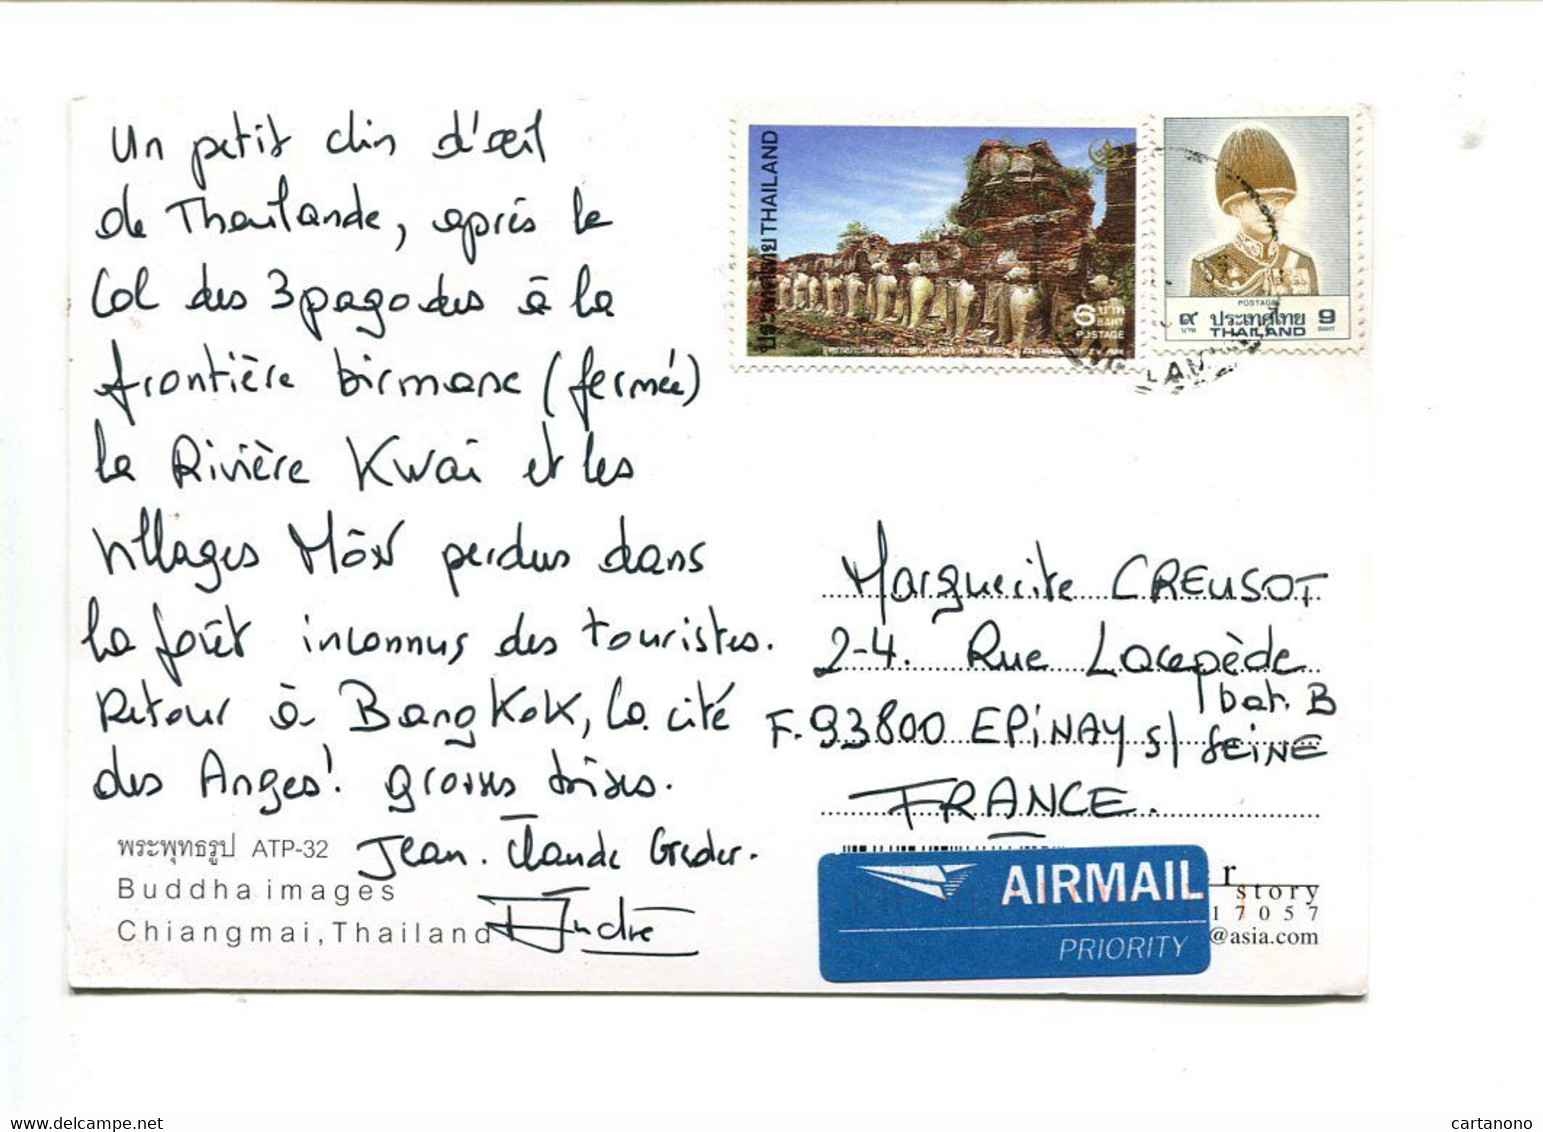 Un petit clin d'œil
de Thaïlande, après le
Col des 3 pagodes à la
frontière birmane (fermée)
la Rivière Kwaï et les
villages Môn perdus dans
la forêt inconnus des touristes.
Retour à BangKoK, la cité
des Anges! grosses bises.
Jean-Claude
André
พระพุทธรูป ATP-32
Buddha images
Chiangmai, Thailand
ประเทศไทย THAILAND
6 บาท
BAHT
POSTAGE
POSTAGE
๙ ประเทศไทย 9
บาท THAILAND BAHT
Marguerite CREUSOT
2-4. Rue Lacepède
bat. B
F. 93800 EPINAY s/ SEINE
FRANCE.
AIRMAIL
PRIORITY
r
story
17057
@asia.com
cartanono